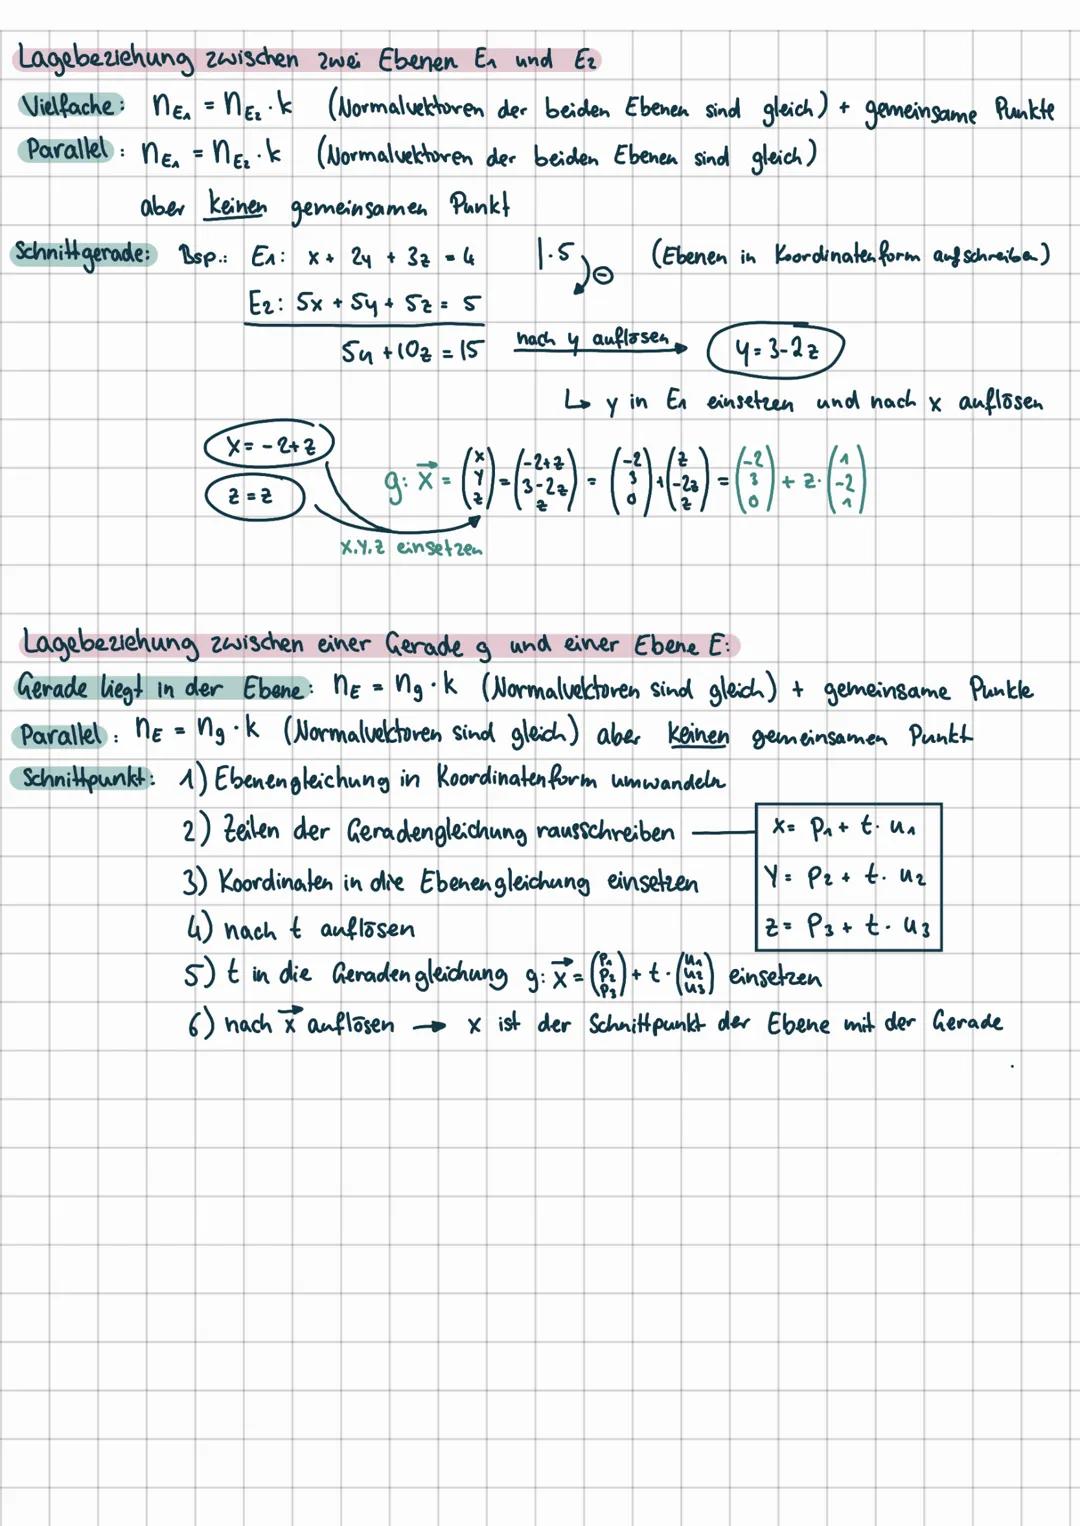 Lagebeziehung zwischen zwei Ebenen E₁ und E₂
Vielfache: n_E₁ = n_E₂ · k (Normalvektoren der beiden Ebenen sind gleich) + gemeinsame Punkte
Parallel: n_E₁ = n_E₂ · k (Normalvektoren der beiden Ebenen sind gleich)
aber keinen gemeinsamen Punkt
Schnittgerade: Bsp.: E₁: x + 2y + 3z = 4 |·5 ⊖ (Ebenen in Koordinatenform aufschreiben)
E₂: 5x + 5y + 5z = 5
5y + 10z = 15 nach y auflösen → y = 3 - 2z
↳ y in E₁ einsetzen und nach x auflösen
x = -2 + z
z = z
g: x⃗ = (x y z) = (-2+z 3-2z z) = (-2 3 0) + (z -2z z) = (-2 3 0) + z · (1 -2 1)
x.y.z einsetzen
Lagebeziehung zwischen einer Gerade g und einer Ebene E:
Gerade liegt in der Ebene: n_E = n_g · k (Normalvektoren sind gleich) + gemeinsame Punkte
Parallel: n_E = n_g · k (Normalvektoren sind gleich) aber keinen gemeinsamen Punkt
Schnittpunkt: 1) Ebenengleichung in Koordinatenform umwandeln
2) Zeilen der Geradengleichung rausschreiben
x = p₁ + t · u₁
y = p₂ + t · u₂
z = p₃ + t · u₃
3) Koordinaten in die Ebenengleichung einsetzen
4) nach t auflösen
5) t in die Geradengleichung g: x⃗ = (p₁ p₂ p₃) + t · (u₁ u₂ u₃) einsetzen
6) nach x⃗ auflösen → x ist der Schnittpunkt der Ebene mit der Gerade